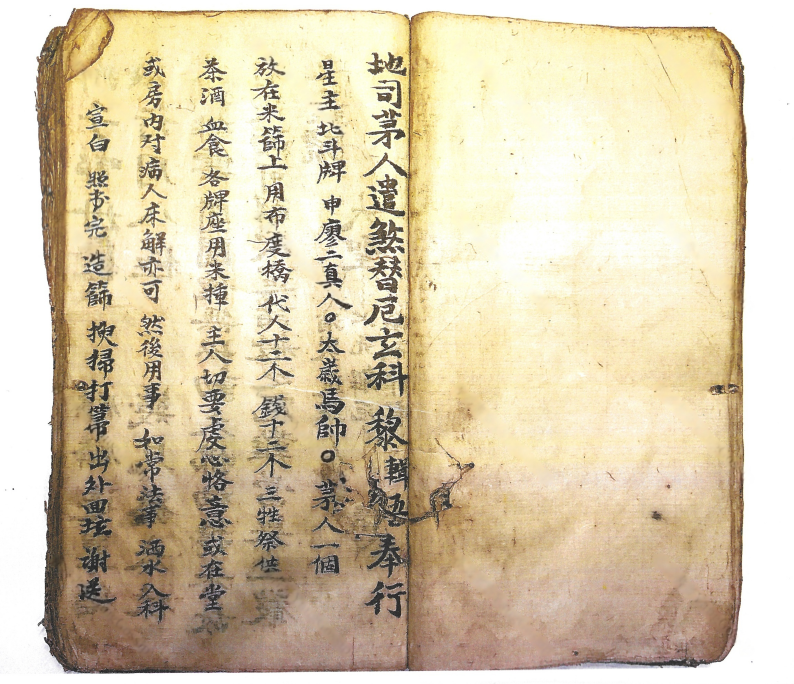 地司茅人遣煞替厄玄科 黎輯 奉行
星主 北斗牌 申廖二真人。太歲馬帥。茅人一個
放在米篩上 用布度橋 代人十二个 錢十二个 三牲祭供
茶酒 血食 各牌座用米 主人切要虔心恪意 或在堂
或房内对病人床解亦可 然後用事 如常法事 洒水入科
宣白 照本完 造篩 掃打 出外 謝送